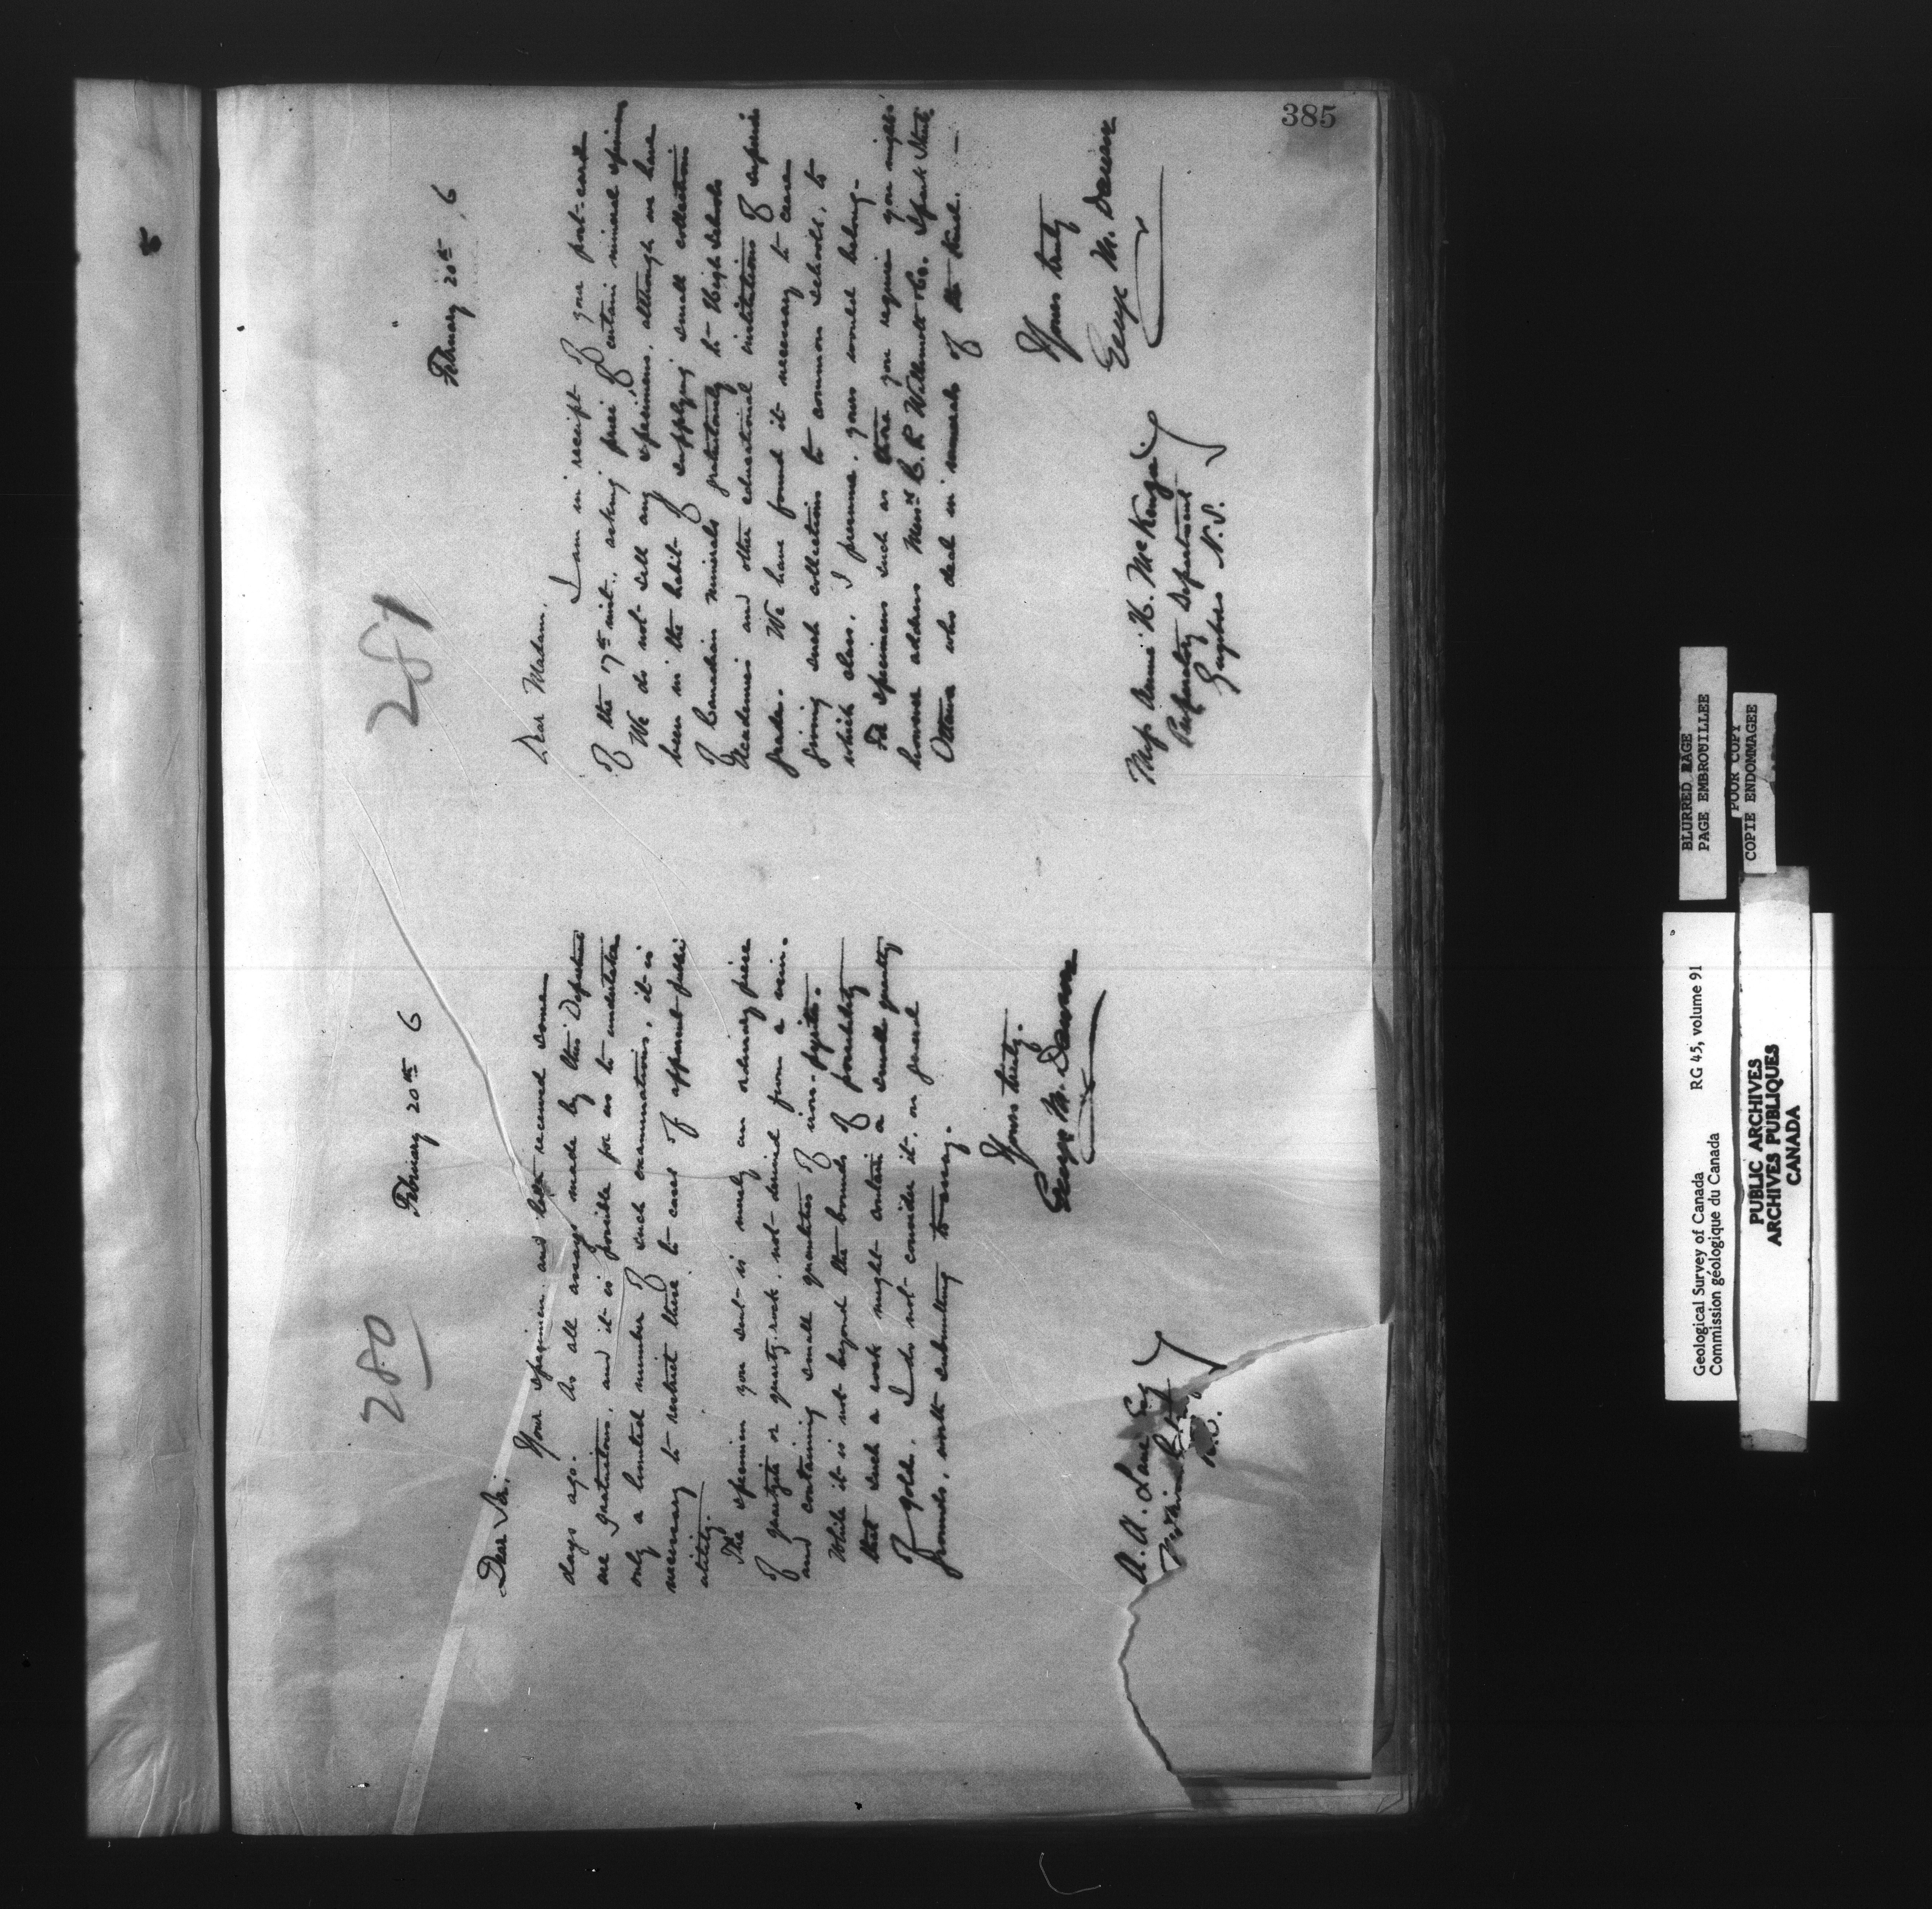 385
280
February 20th 6
Dear Sir,
Your specimen and letter received some
days ago. As all assays made by this Department
are gratuitous, and it is possible for us to undertake
only a limited number of such examinations, it is
necessary to restrict these to cases of apparent public
utility.
The specimen you sent is merely an ordinary piece
of quartzite or quartz rock, not derived from a vein
and containing small quantities of iron-pyrites.
While it is not beyond the bounds of possibility
that such a rock might contain a small quantity
of gold, I do not consider it, on general
grounds, worth submitting to assay.
Yours truly,
George M. Dawson
A. A. Lane Esq
281
February 20th, 6
Dear Madam,
I am in receipt of your post-card
of the 17th inst., asking price of certain mineral specimens
We do not sell any specimens, although we have
been in the habit of supplying small collections
of Canadian minerals gratuitously to High Schools
Academies and other educational institutions of superior
grade. We have found it necessary to cease
giving such collections to common schools, to
which class, I presume, yours would belong.
For specimens such as those you require you might
however address Messrs C. R. Willimott & Co. Spark Street
Ottawa who deal in minerals of the kind.
Yours truly
George M. Dawson
Miss Annie H. McKenzie
Preparatory Department
Guysboro N.S.
BLURRED PAGE
PAGE EMBROUILLEE
POOR COPY
COPIE ENDOMMAGEE
Geological Survey of Canada RG 45, volume 91
Commission géologique du Canada
PUBLIC ARCHIVES
ARCHIVES PUBLIQUES
CANADA